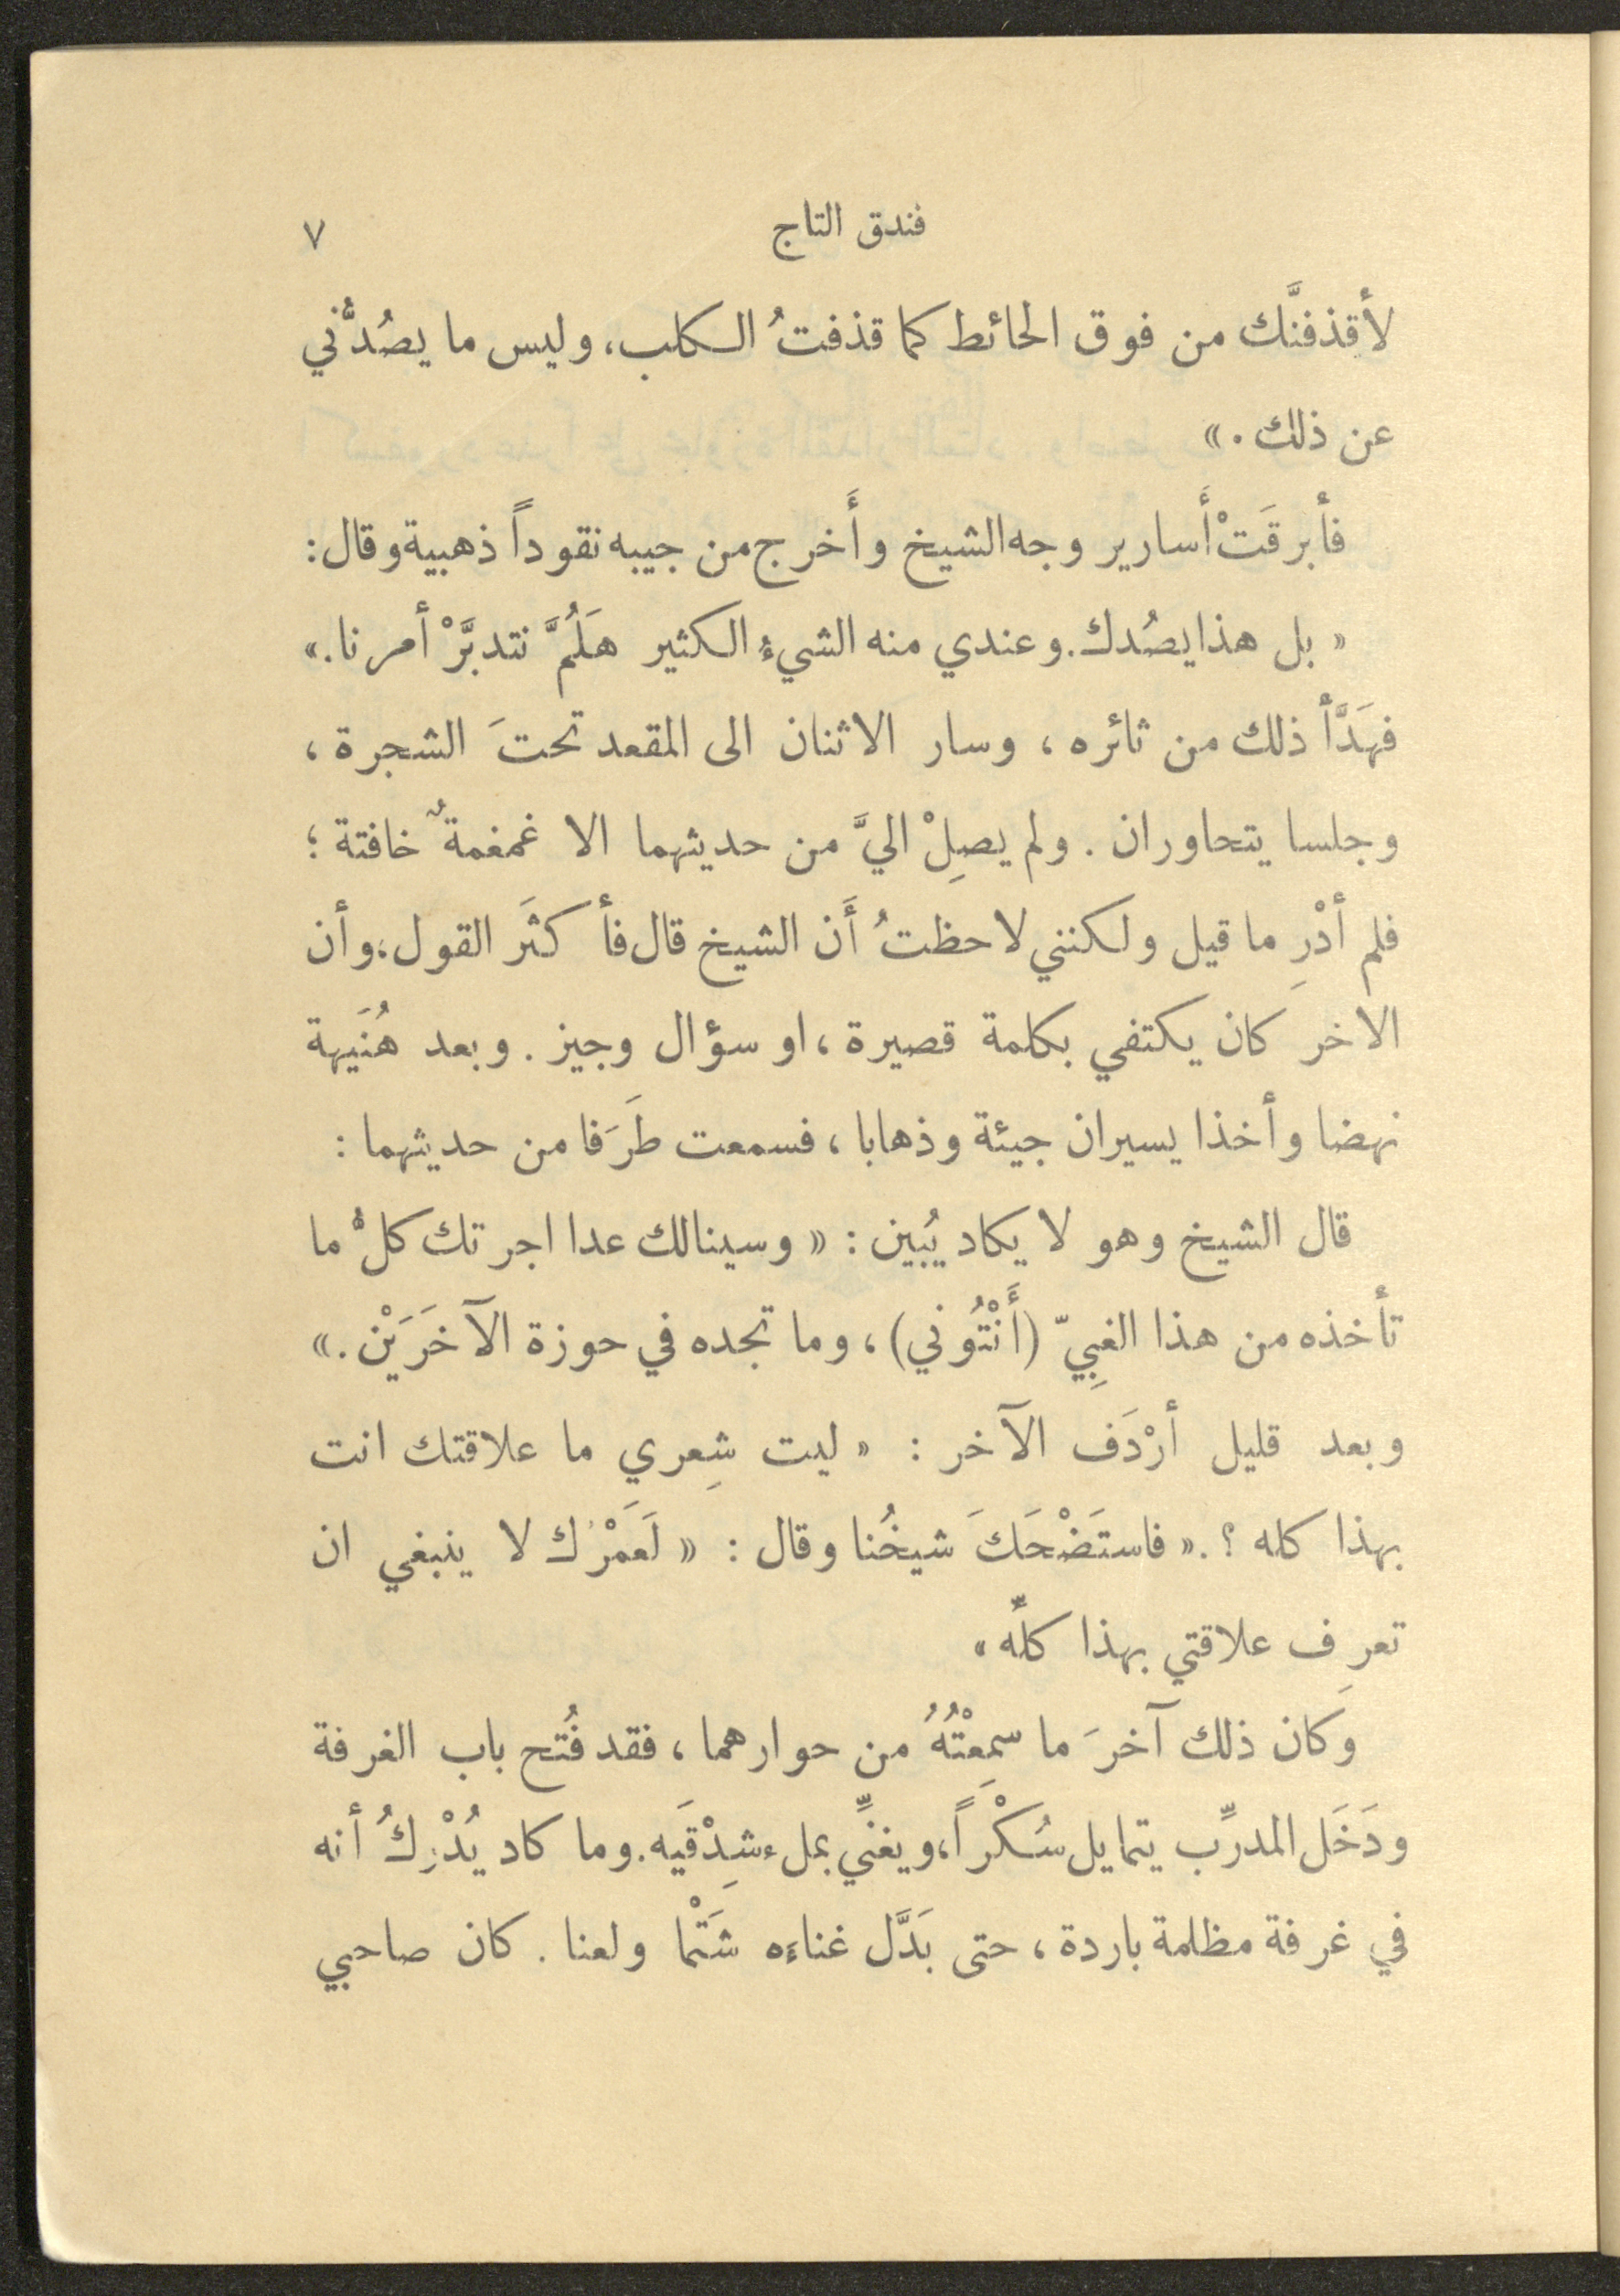 فندق التاج ٧
لأقذفنَّك من فوق الحائط كما قذفتُ الكلب، وليس ما يصُدُّني
عن ذلك . »
فأبرقَتْ أَسارير وجه الشيخ وأَخرج من جيبه نقوداً ذهبية وقال:
« بل هذا يصُدك. وعندي منه الشيءُ الكثير هَلُمَّ نتدبَّرْ أمرنا. »
فهَدَّأ ذلك من ثائره ، وسار الاثنان الى المقعد تحتَ الشجرة ،
وجلسا يتحاوران . ولم يصِلْ اليَّ من حديثهما الا غمغمةٌ خافتة ؛
فلم أدْرِ ما قيل ولكنني لاحظتُ أَن الشيخ قال فأكثَر القول ؛ وأن
الاخر كان يكتفي بكلمة قصيرة ، او سؤال وجيز . وبعد هُنَيهة
نهضا وأخذا يسيران جيئة وذهابا ، فسمعت طَرَفا من حديثهما :
قال الشيخ وهو لا يكاد يُبين : « وسينالك عدا اجرتك كلُّ ما
تأخذه من هذا الغبِيّ (أَنْتُوني) ، وما تجده في حوزة الآخَرَيْن . »
وبعد قليل أرْدَف الآخر : « ليت شِعري ما علاقتك انت
بهذا كله ؟ . » فاستَضْحَكَ شيخُنا وقال : « لَعَمْرُك لا ينبغي ان
تعرِف علاقتي بهذا كلِّه »
وكان ذلك آخرَ ما سمِعْتُهُ من حوارهما ، فقد فُتح باب الغرفة
ودَخَل المدرِّب يتمايل سُكْراً، ويغنِّي بملء شِدْقَيه. وما كاد يُدْرِكُ أنه
في غرفة مظلمة باردة ، حتى بَدَّل غناءَه شَتْما ولعنا . كان صاحبي